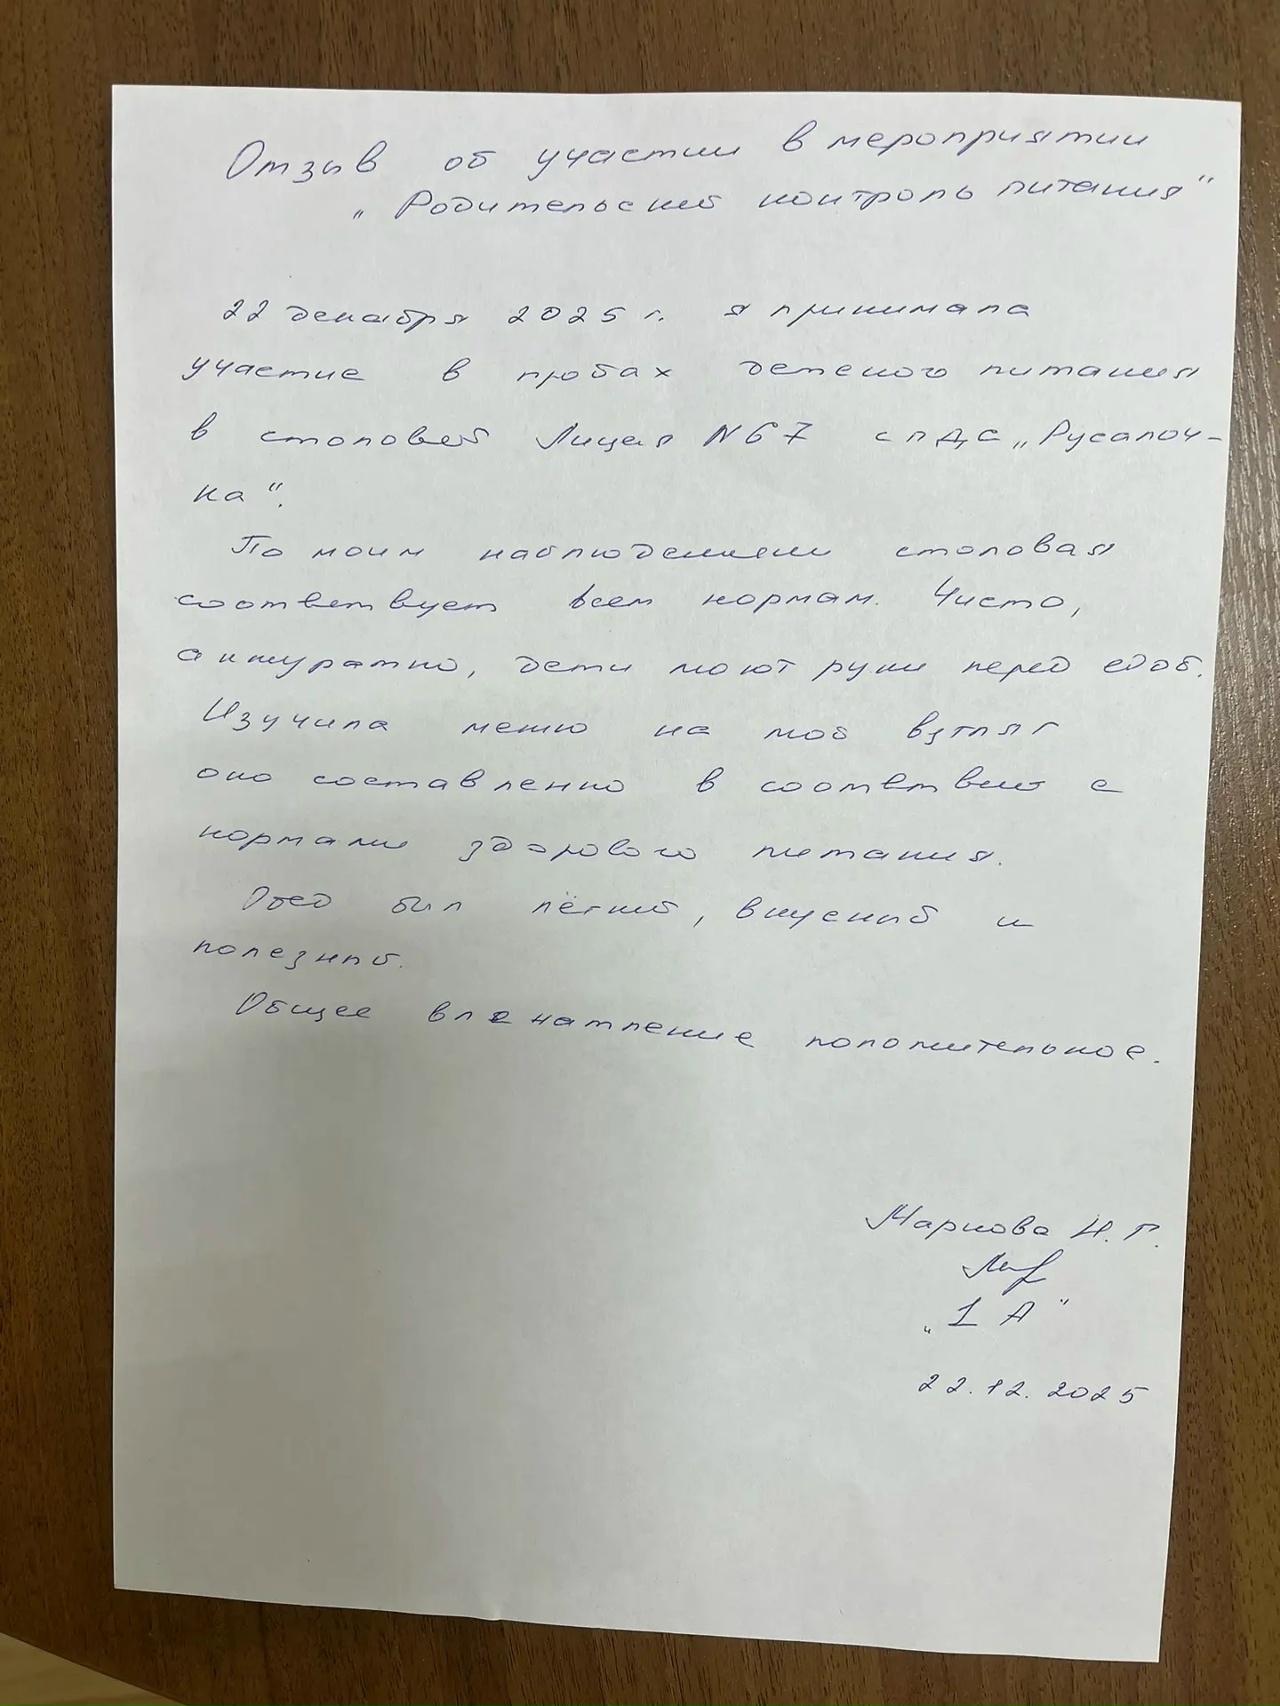 Отзыв об участии в мероприятии
„Родительский контроль питания"
22 декабря 2025 г. я принимала
участие в пробах детского питания
в столовой Лицея N67 спДС „Русалоч-
ка".
По моим наблюдениям столовая
соответствует всем нормам. Чисто,
аккуратно, дети моют руки перед едой.
Изучила меню на мой взгляг
оно составленно в соответвии с
нормами здорового питания.
Обед был лёгкий, вкусный и
полезный.
Общее впечатление положительное.
Маркова Н. Г.
„1 А"
22.12.2025